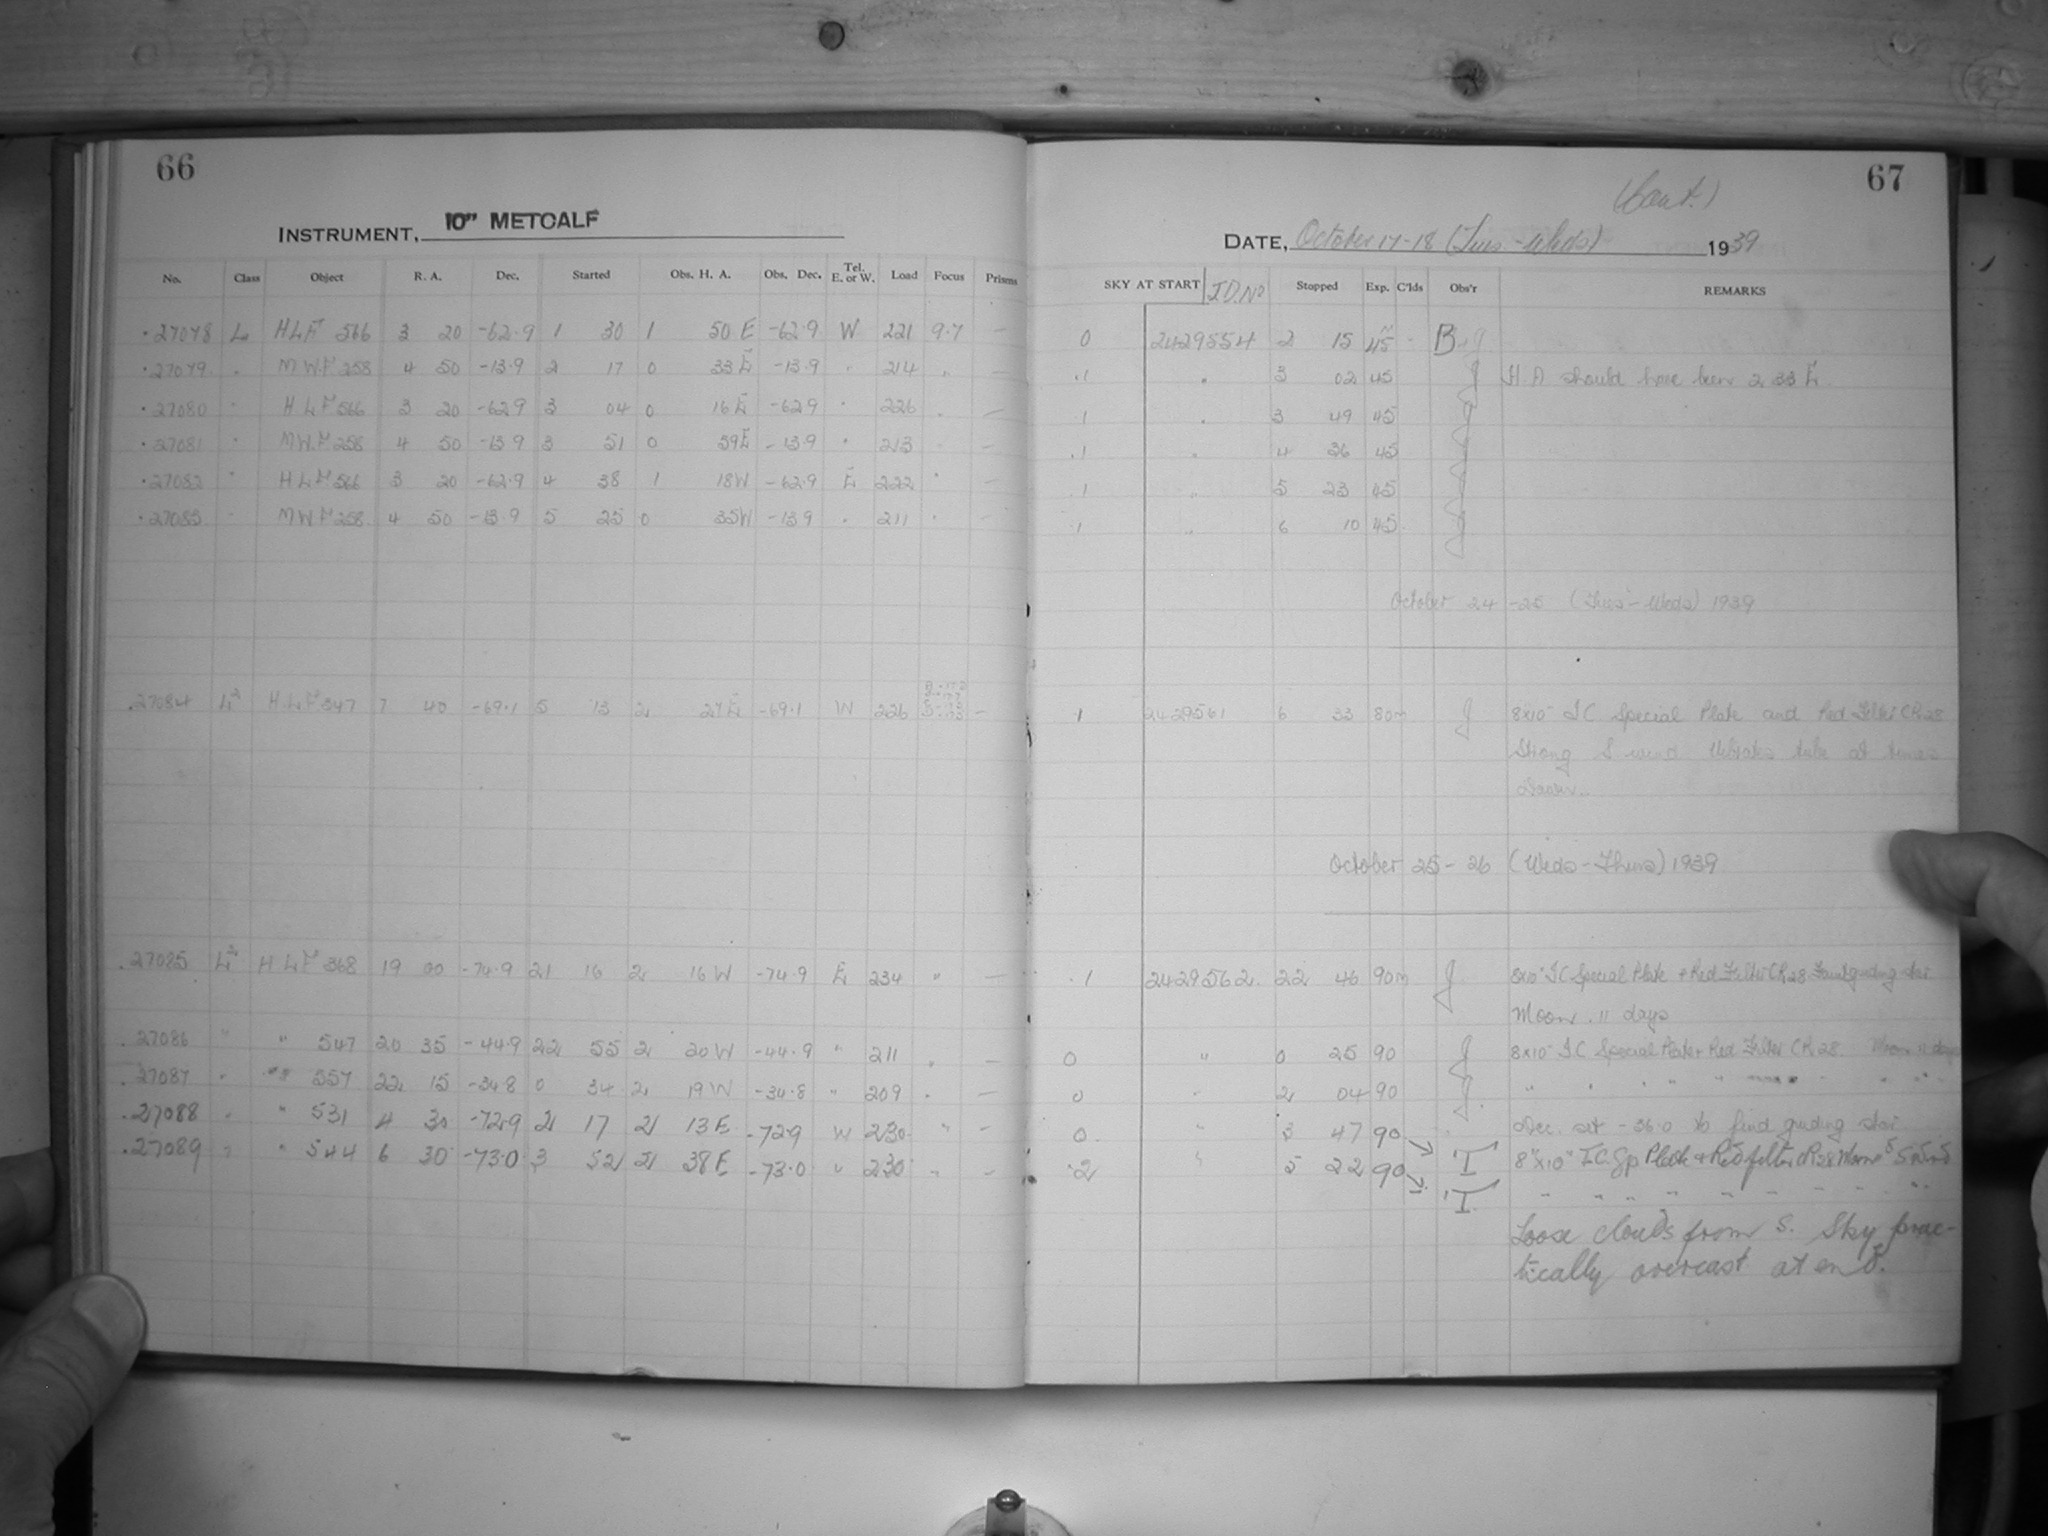 66
INSTRUMENT, 10" METCALF
No. Class Object R. A. Dec. Started Obs. H. A. Obs. Dec. Tel. E. or W. Load Focus Prisms
.27078 L HLF 566 3 20 -62.9 1 30 1 50 E -62.9 W 221 9.7 —
.27079 " MWF 258 4 50 -13.9 2 17 0 33 E -13.9 " 214 "
.27080 " HLF 566 3 20 -62.9 3 04 0 16 E -62.9 " 226 " —
.27081 " MWF 258 4 50 -13.9 3 51 0 59 E -13.9 " 213 —
.27082 " HLF 566 3 20 -62.9 4 38 1 18 W -62.9 E 222 " —
.27083 " MWF 258 4 50 -13.9 5 25 0 35 W -13.9 " 211 " —
.27084 HLF 7 40 -69.1 5 13 2 27 E -69.1 W 226 —
.27085 HLF 368 19 00 -74.9 21 16 2 16 W -74.9 E 234 " —
.27086 " " 547 20 35 -44.9 22 55 2 20 W -44.9 " 211 " —
.27087 " " 557 22 15 -34.8 0 34 2 19 W -34.8 " 209 " —
.27088 " " 531 4 30 -72.9 2 17 2 13 E -72.9 W 230 " —
.27089 " " 544 6 30 -73.0 3 52 2 38 E -73.0 " 230 " —
67
(Cont.)
DATE, October 17-18 (Tues-Weds) 1939
SKY AT START J.D. No Stopped Exp. C'lds Obs'r REMARKS
0 2429554 2 15 45 B
.1 " 3 02 45 J H A should have been 2 33 E.
1 " 3 49 45
.1 " 4 36 45
.1 " 5 23 45
.1 " 6 10 45
October 24-25 (Tues-Weds) 1939
1 2429561 6 33 80m J 8x10" I C Special Plate and Red Filter CR28
Strong S wind vibrates tube at times
Dawn.
October 25-26 (Weds-Thurs) 1939
.1 2429562 22 46 90m J 8x10" I C Special Plate + Red Filter CR28 Faint guiding star
Moon 11 days
0 " 0 25 90 J 8x10" I C Special Plate + Red Filter CR28. Moon 11 days
0 " 2 04 90 J " " " " " " "
Dec. set -36.0 to find guiding star.
0 " 3 47 90 T 8"x10" I.C. Sp Plate + Red filter CR28
.2 " 5 22 90 T " " " " " " "
Loose clouds from S. Sky prac-
tically overcast at end.